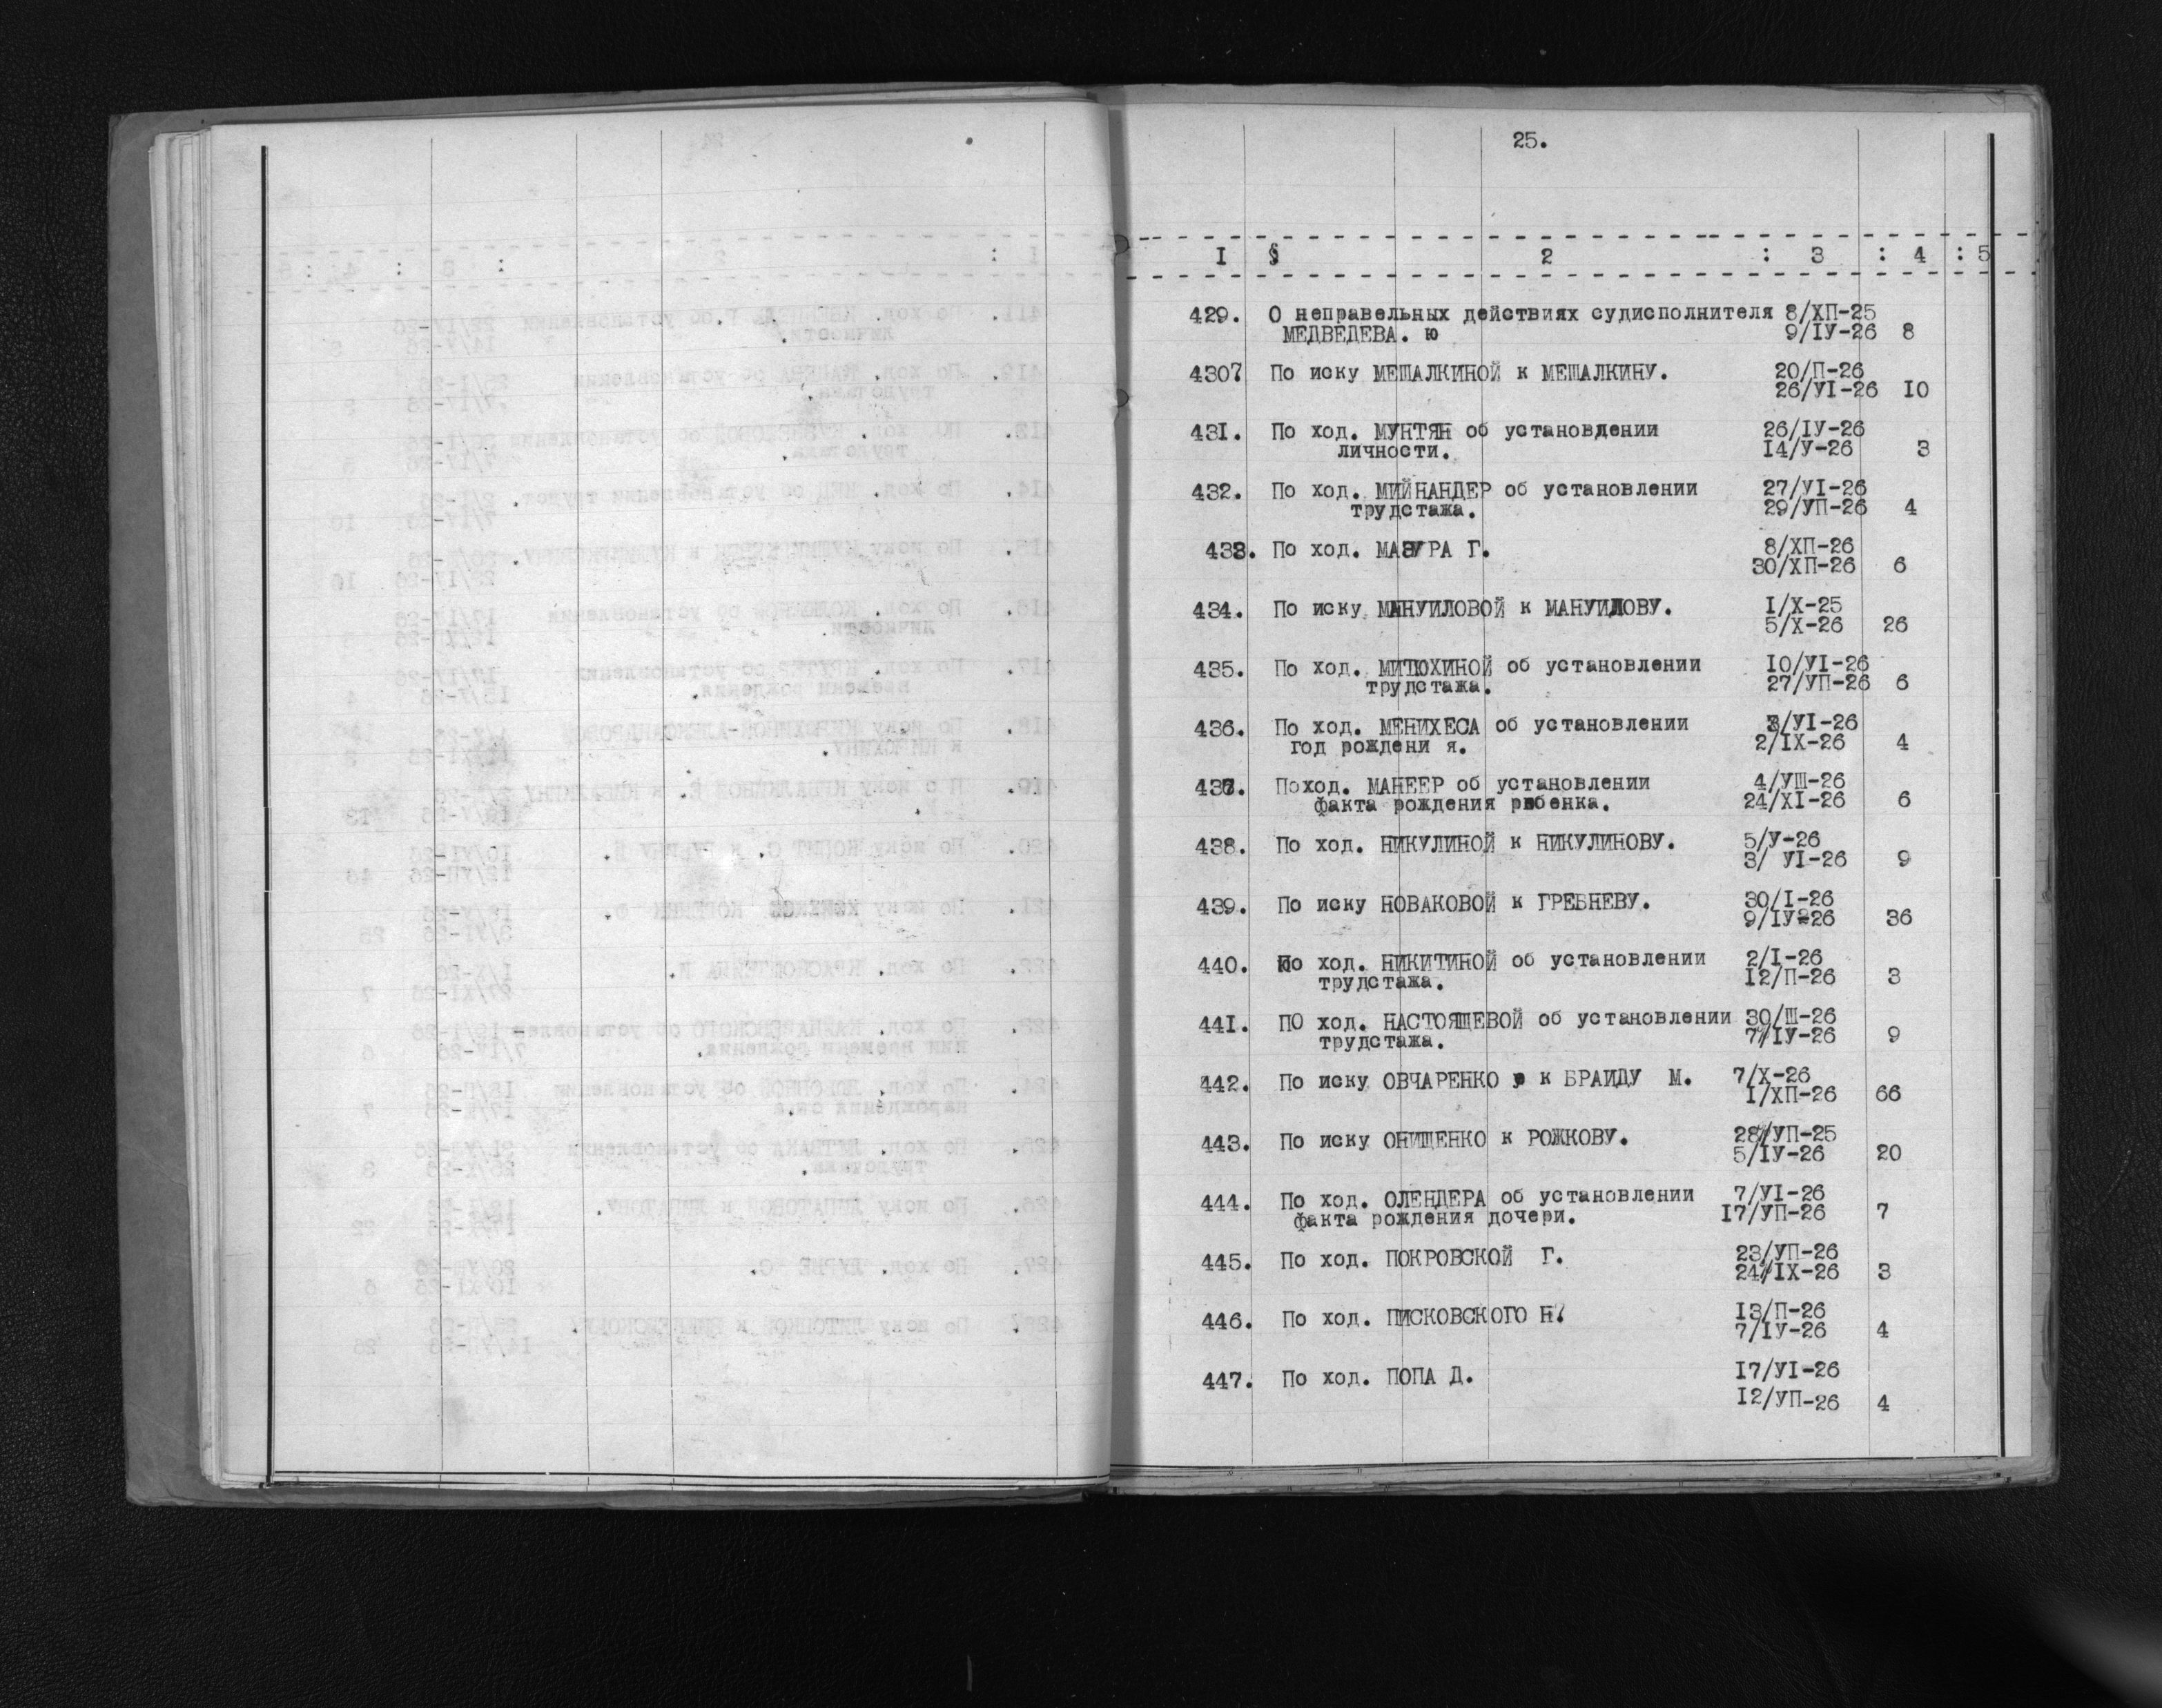 25.
I § 2 : 3 : 4 : 5
429. О неправельных действиях судисполнителя 8/ХП-25
МЕДВЕДЕВА. ю 9/IУ-26 8
4307 По иску МЕШАЛКИНОЙ к МЕШАЛКИНУ. 20/П-26
26/УI-26 10
431. По ход. МУНТЯН об установдении 26/IУ-26
личности. I4/У-26 3
432. По ход. МИЙНАНДЕР об установлении 27/УI-26
трудстажа. 29/УП-26 4
433. По ход. МАЗУРА Г. 8/ХП-26
30/ХП-26 6
434. По иску МАНУИЛОВОЙ к МАНУИЛОВУ. I/Х-25
5/Х-26 26
435. По ход. МИТЮХИНОЙ об установлении I0/УI-26
трудстажа. 27/УП-26 6
436. По ход. МЕНИХЕСА об установлении 3/УI-26
год рождени я. 2/IХ-26 4
437. Поход. МАНЕЕР об установлении 4/УШ-26
факта рождения рбенка. 24/ХI-26 6
438. По ход. НИКУЛИНОЙ к НИКУЛИНОВУ. 5/У-26
3/ УI-26 9
439. По иску НОВАКОВОЙ к ГРЕБНЕВУ. 30/I-26
9/IУ-26 36
440. По ход. НИКИТИНОЙ об установлении 2/I-26
трудстажа. I2/П-26 3
441. ПО ход. НАСТОЯЩЕВОЙ об установлении 30/Ш-26
трудстажа. 7/IУ-26 9
442. По иску ОВЧАРЕНКО к БРАИДУ М. 7/Х-26
I/ХП-26 66
443. По иску ОНИЩЕНКО к РОЖКОВУ. 28/УП-25
5/IУ-26 20
444. По ход. ОЛЕНДЕРА об установлении 7/УI-26
факта рождения дочери. I7/УП-26 7
445. По ход. ПОКРОВСКОЙ Г. 23/УП-26
24/IХ-26 3
446. По ход. ПИСКОВСКОГО Н. I3/П-26
7/IУ-26 4
447. По ход. ПОПА Д. I7/УI-26
I2/УП-26 4